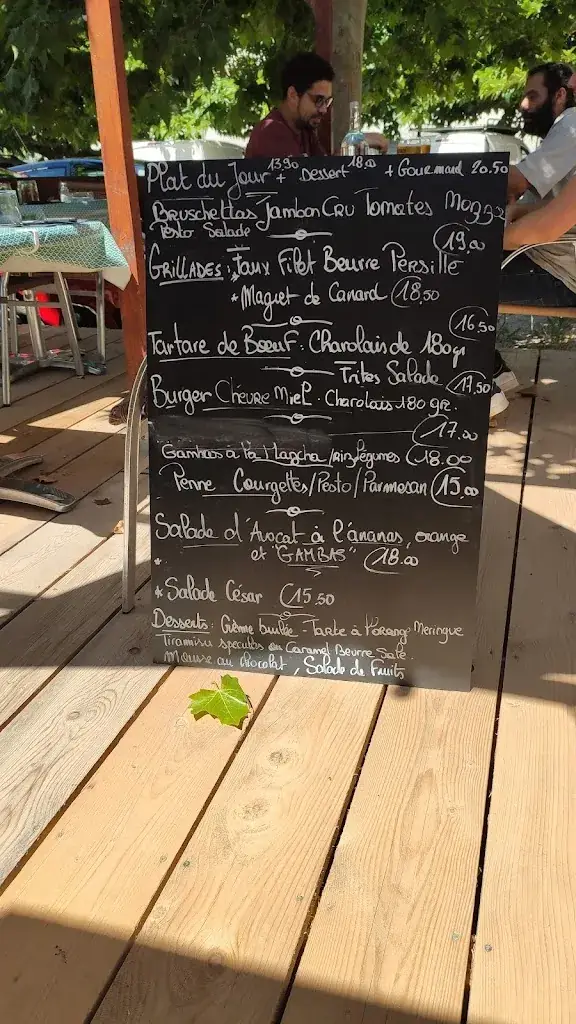 Plat du Jour 13,90 + Dessert 18.00 + Gourmand 20.50
Bruschettas Jambon Cru Tomates Mozza
Pesto Salade
19.00
GRILLADES : Faux Filet Beurre Persillé
* Magret de Canard 18,50
16,50
Tartare de Boeuf. Charolais de 180gr
Frites Salade 17,50
Burger Chèvre Miel. Charolais 180 gr.
17.00
Gambas à la Plancha /riz/légumes 18.00
Penne Courgettes/Pesto/Parmesan 15,00
Salade d'Avocat à l'ananas, orange
et "GAMBAS" 18.00
*
* Salade César 15.50
Desserts: Crème brulée - Tarte à l'orange Meringue
Tiramisu speculos ou Caramel Beurre Salé.
Mousse au chocolat, Salade de Fruits